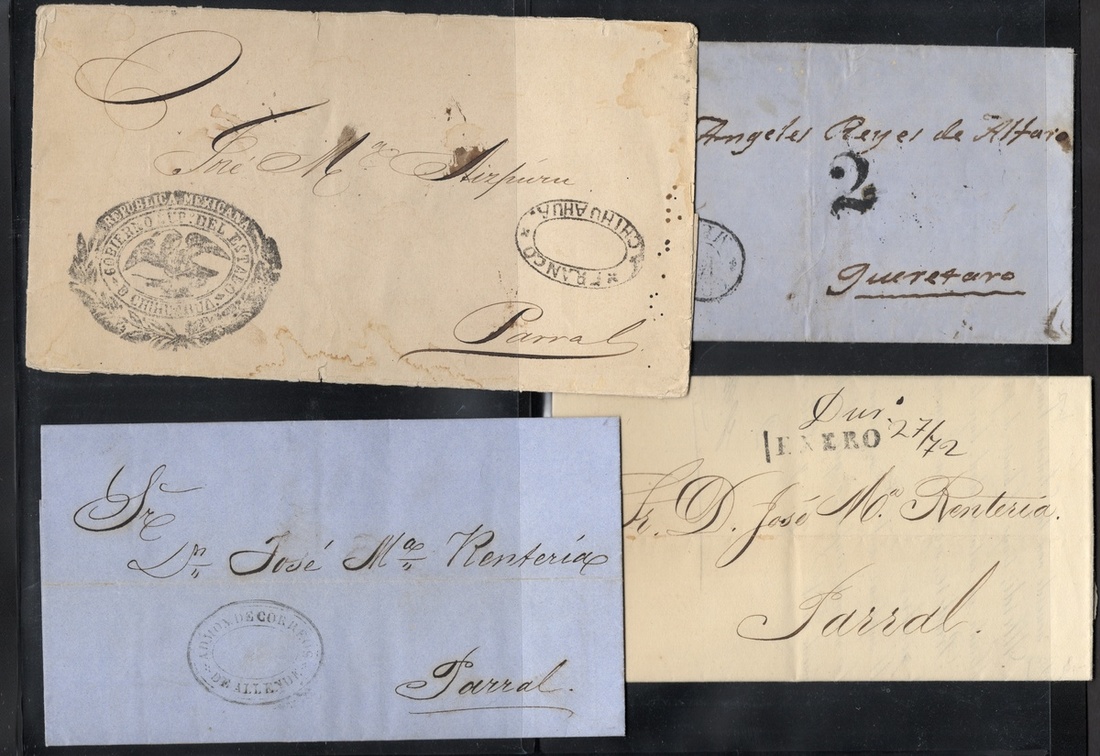 José Ma. Aizpúru
REPUBLICA MEXICANA
GOBIERNO SUP. DEL ESTADO
D CHIHUAHUA
FRANCO
CHIHUAHUA.
Parral
Angeles Reyes de Alfaro
2
Queretaro
Sr.
Dn. José Ma. Rentería
ADMON DE CORREOS
DE ALLENDE
Parral.
Dur.
ENERO 27/72
Sr. D. José Ma. Rentería.
Parral.